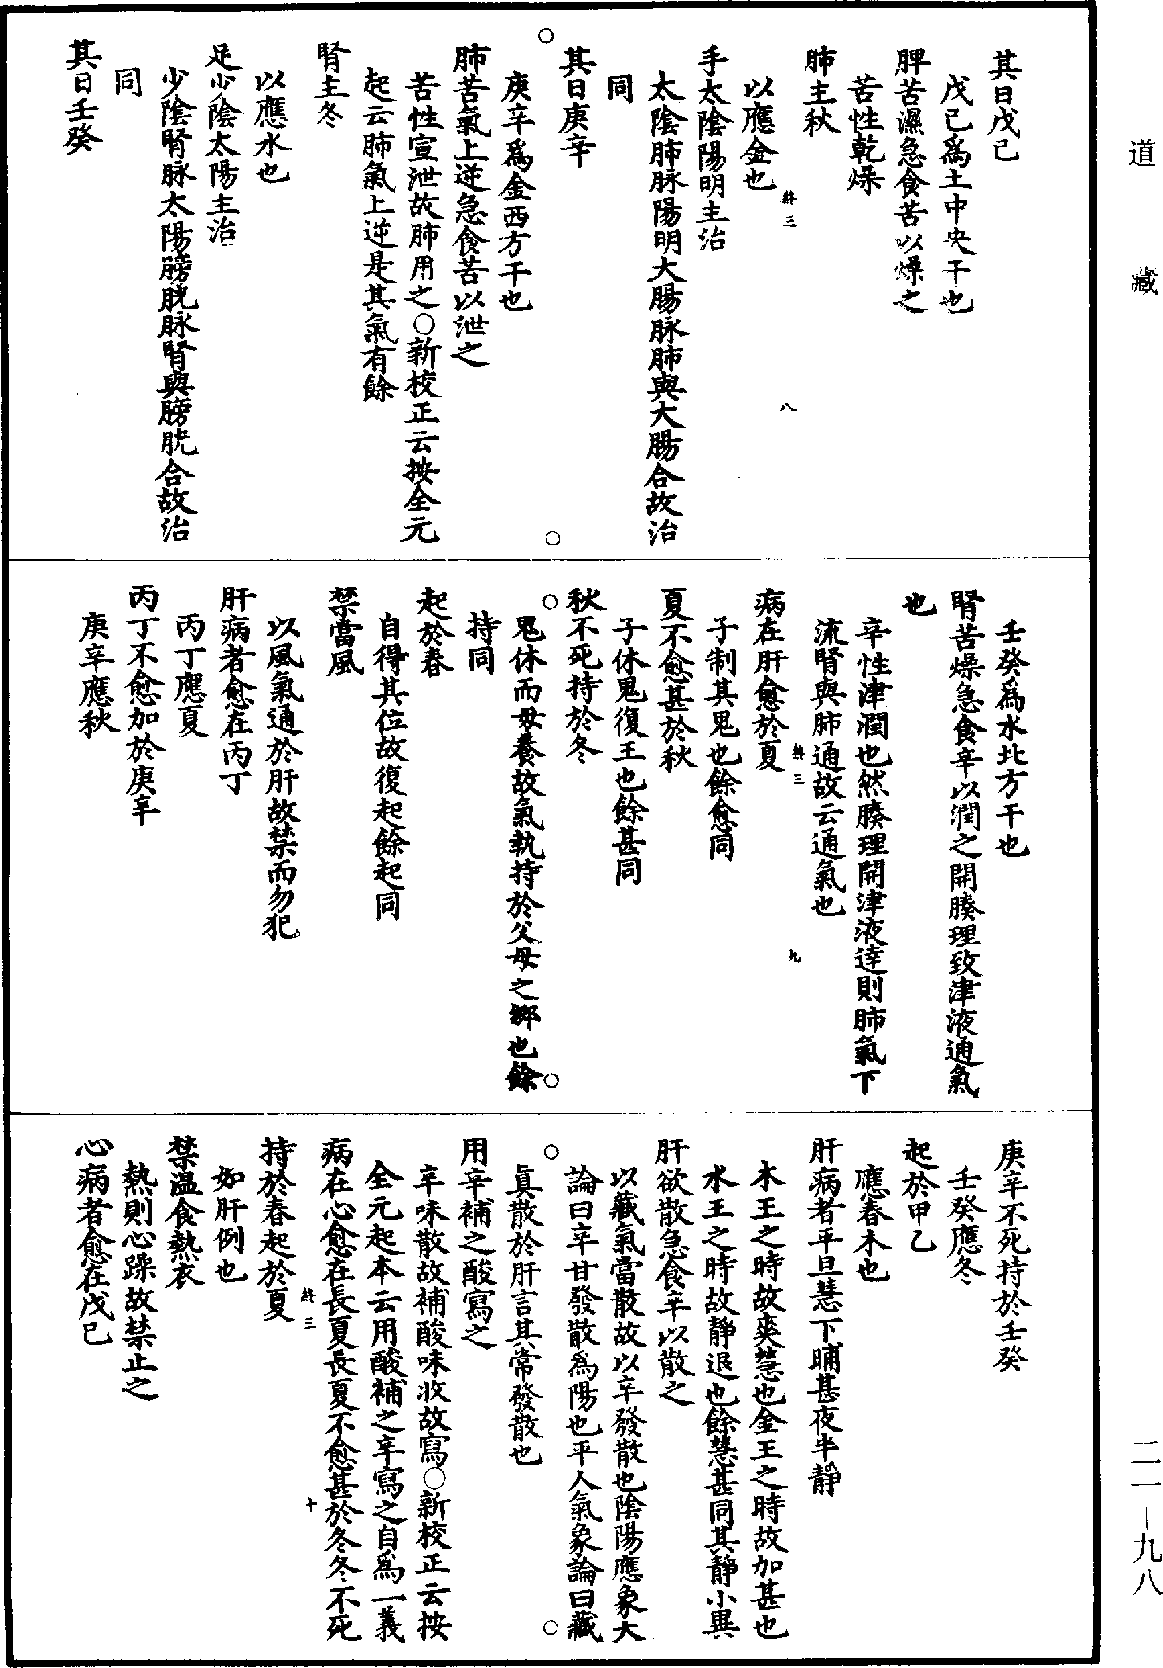 道藏
其日戊己
戊己爲土中央干也
脾苦濕急食苦以燥之
苦性乾燥
肺主秋
以應金也
手太陰陽明主治
太陰肺脉陽明大腸脉肺與大腸合故治
同
其日庚辛
庚辛爲金西方干也
肺苦氣上逆急食苦以泄之
苦性宣泄故肺用之○新校正云按全元
起云肺氣上逆是其氣有餘
腎主冬
以應水也
足少陰太陽主治
少陰腎脉太陽膀胱脉腎與膀胱合故治
同
其日壬癸
壬癸爲水北方干也
腎苦燥急食辛以潤之開腠理致津液通氣
也
辛性津潤也然腠理開津液達則肺氣下
流腎與肺通故云通氣也
病在肝愈於夏
子制其鬼也餘愈同
夏不愈甚於秋
子休鬼復王也餘甚同
秋不死持於冬
鬼休而母養故氣執持於父母之鄉也餘
持同
起於春
自得其位故復起餘起同
禁當風
以風氣通於肝故禁而勿犯
肝病者愈在丙丁
丙丁應夏
丙丁不愈加於庚辛
庚辛應秋
庚辛不死持於壬癸
壬癸應冬
起於甲乙
應春木也
肝病者平旦慧下晡甚夜半靜
木王之時故爽慧也金王之時故加甚也
水王之時故靜退也餘慧甚同其靜小異
肝欲散急食辛以散之
以藏氣當散故以辛發散也陰陽應象大
論曰辛甘發散爲陽也平人氣象論曰藏
眞散於肝言其常發散也
用辛補之酸寫之
辛味散故補酸味收故寫○新校正云按
全元起本云用酸補之辛寫之自爲一義
病在心愈在長夏長夏不愈甚於冬冬不死
持於春起於夏
如肝例也
禁溫食熱衣
熱則心躁故禁止之
心病者愈在戊己
二一—九八